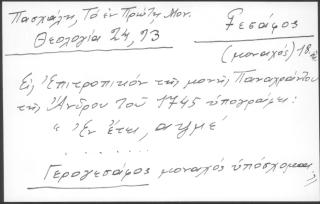 Πασχάλη, Τό ἐν Πρώτῃ Μον.
Θεολογία 24, 23
Γεσάφος
(μοναχός) 18 αἰ.
Εἰς Ἐπιτροπικόν τῆς μονῆς Παναχράντου
τῆς Ἄνδρου τοῦ 1745 ὑπογράφει:
"Ἐν ἔτει, αψμέ
. . . . . . .
Γερογεσάφος μοναχός ὑπόσχομαι"